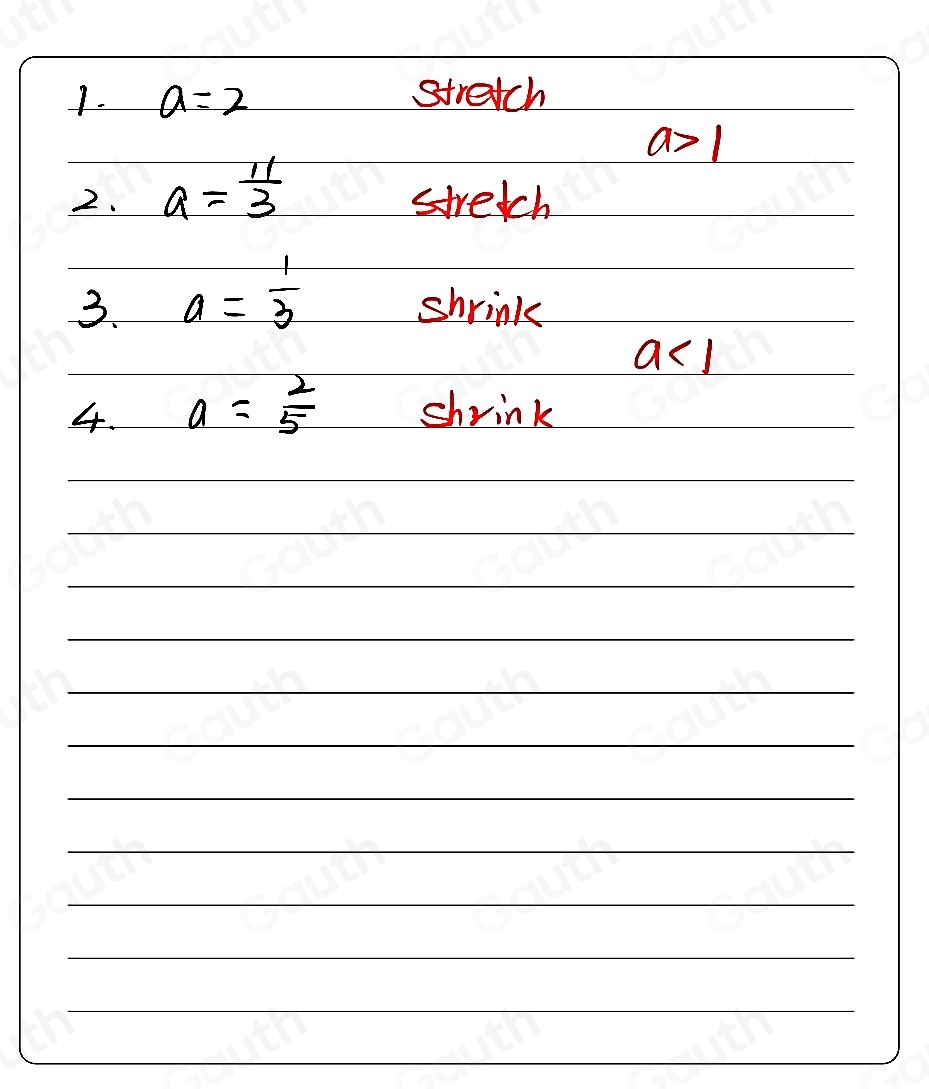 1. a = 2 stretch
a > 1
2. a = 11/3 stretch
3. a = 1/3 shrink
a < 1
4. a = 2/5 shrink
Gauth